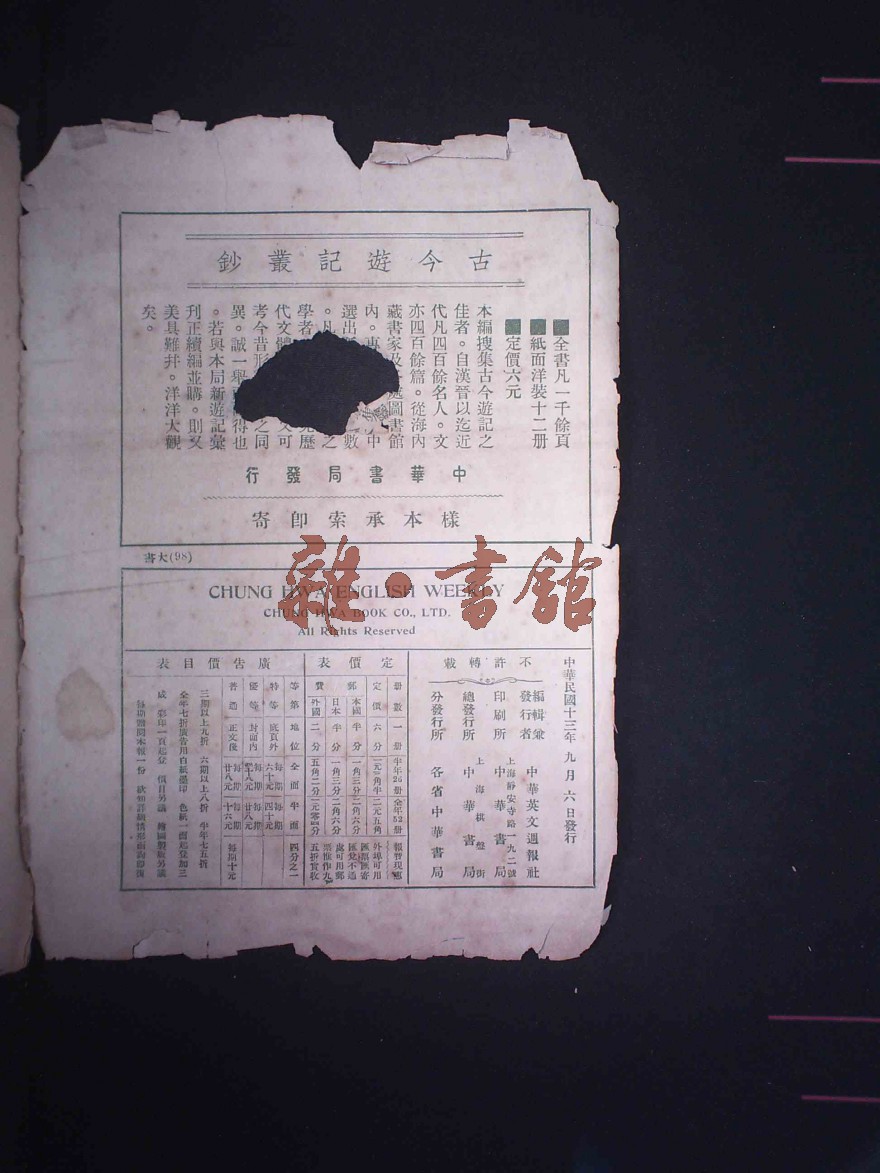 古今遊記叢鈔
全書凡一千餘頁
紙面洋裝十二册
定價六元
本編搜集古今遊記之
佳者。自漢晉以迄近
代凡四百餘名人。文
亦四百餘篇。從海內
藏書家及 處圖書館
內。專 中
選出 數
。凡 之
學者 歷
代文體 可
考今昔形 之同
異。誠一舉 得也
。若與本局新遊記彙
刋正續編並購。則又
美具難并。洋洋大觀
矣。
中華書局發行
樣本承索卽寄
(98)大書
CHUNG HWA ENGLISH WEEKLY
CHUNG HWA BOOK CO., LTD.
All Rights Reserved
中華民國十三年九月六日發行
不許轉載
編輯兼發行者 中華英文週報社
印刷所 上海靜安寺路一九二號 中華書局
總發行所 上海棋盤街 中華書局
分發行所 各省中華書局
定價表
册數 一册 半年26册 全年52册
定價 六分 一元三角半 二元五角
郵費 本國 半分 一角三分 二角六分
日本 半分 一角三分 二角六分
外國 二分 五角二分 一元零四分
廣告價目表
等第 地位 全面 半面 四分之一
特等 底頁外 每期六十元 每期四十元
優等 封面內 每期 每期廿八元
普通 正文後 每期廿八元 每期十六元 每期十元
三期以上九折 六期以上八折 半年七五折
全年七折廣告用白紙墨印 色紙一面起登加三
成 彩印一頁起登 價目另議 繪圖製版另議